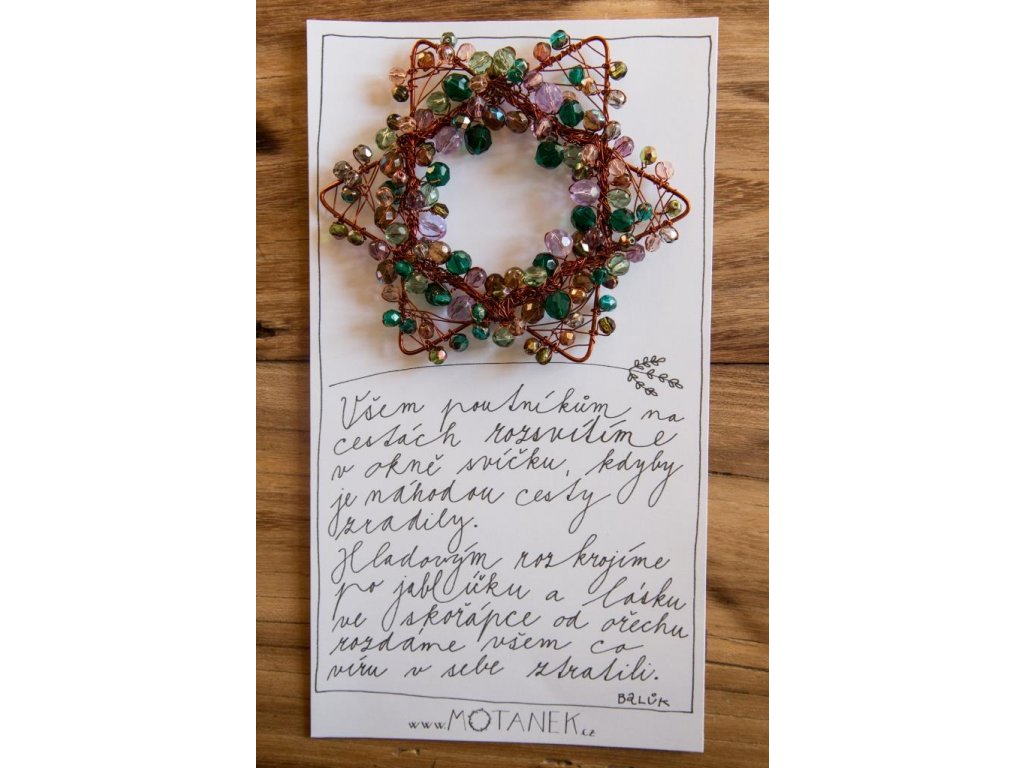 Všem poutníkům na
cestách rozsvítíme
v okně svíčku, kdyby
je náhodou cesty
zradily.
Hladovým rozkrojíme
po jablíčku a lásku
ve skořápce od ořechu
rozdáme všem co
víru v sebe ztratili.
BALŮK
www.MOTANEK.cz